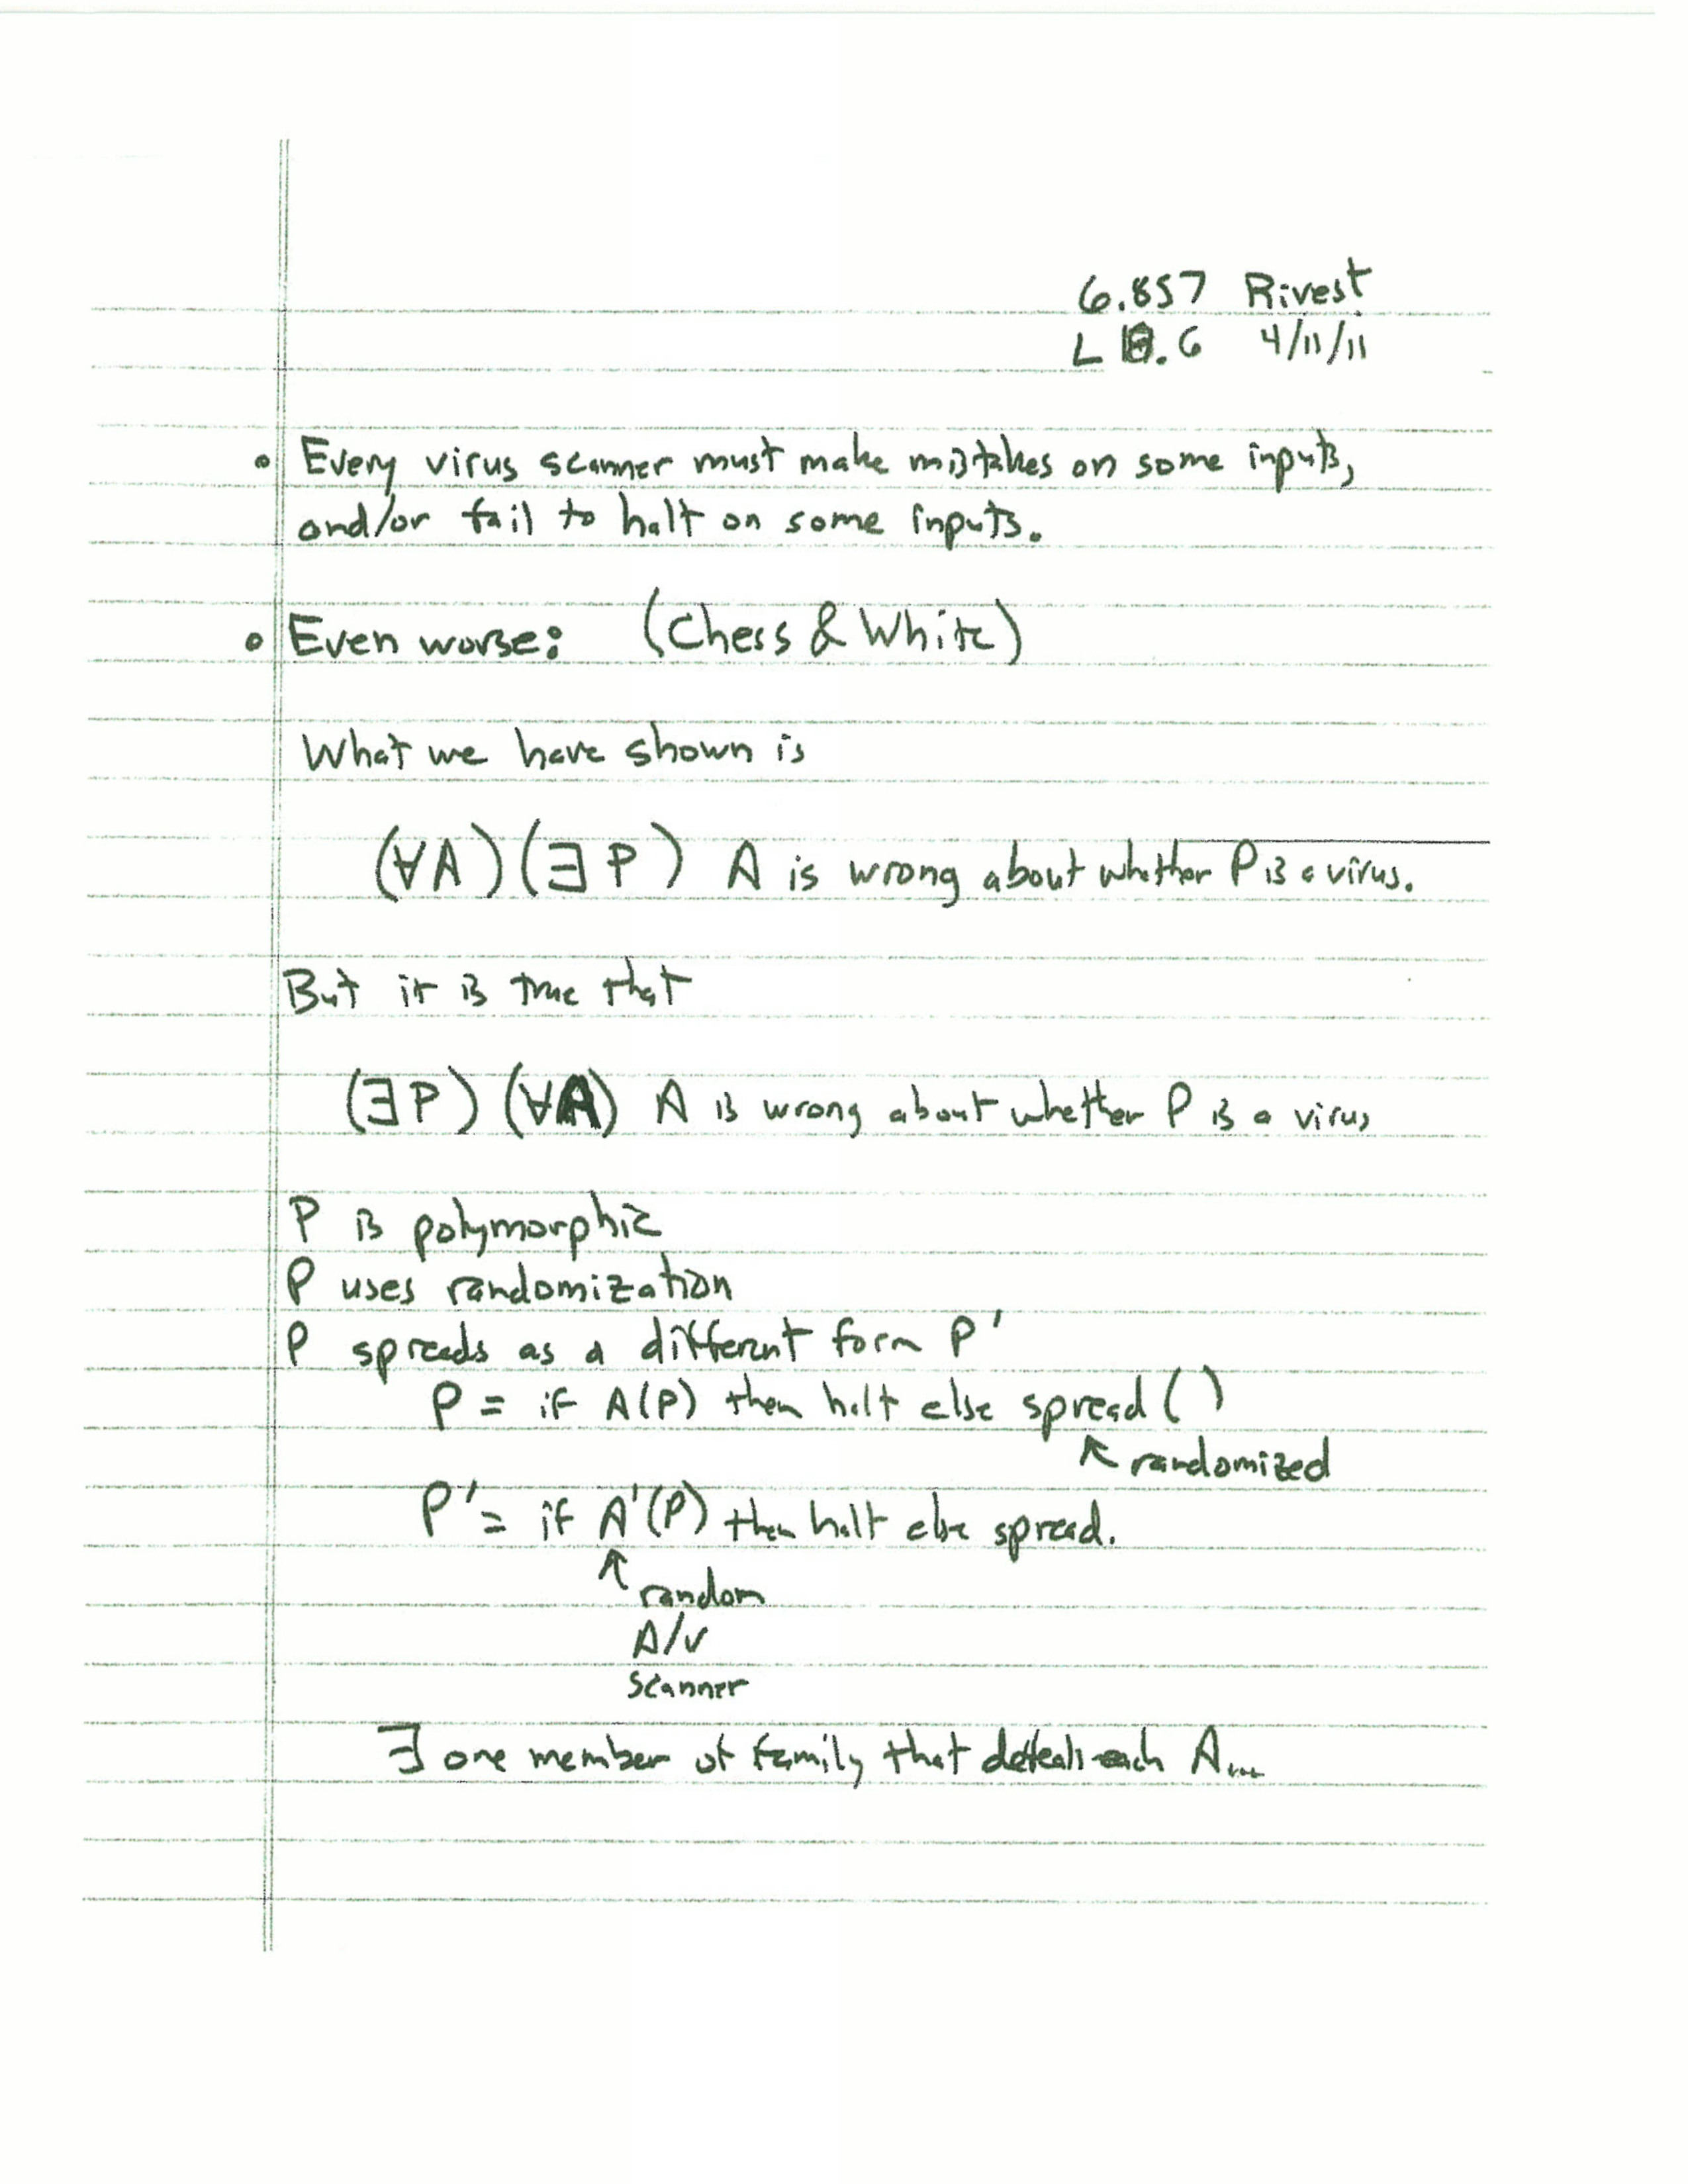 6.857 Rivest
L .6 4/11/11
• Every virus scanner must make mistakes on some inputs,
and/or fail to halt on some inputs.
• Even worse: (Chess & White)
What we have shown is
(∀A)(∃P) A is wrong about whether P is a virus.
But it is true that
(∃P) (∀A) A is wrong about whether P is a virus
P is polymorphic
P uses randomization
P spreads as a different form P'
P = if A(P) then halt else spread()
↖ randomized
P' = if A'(P) then halt else spread.
↖ random
A/V
scanner
∃ one member of family that defeats each A...